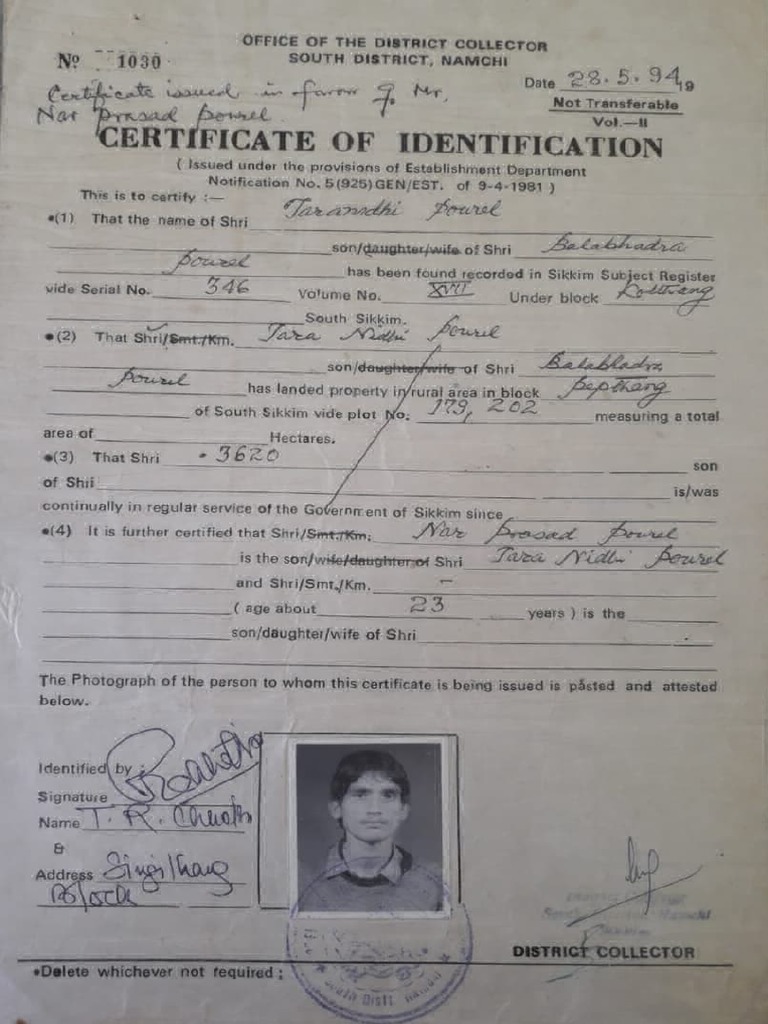 OFFICE OF THE DISTRICT COLLECTOR
Nº 1030 SOUTH DISTRICT, NAMCHI
Date 28.5.94 19
Certificate issued in favour of Mr. Not Transferable
Nar Prasad Pourel Vol.—II
CERTIFICATE OF IDENTIFICATION
( Issued under the provisions of Establishment Department
Notification No. 5(925)GEN/EST. of 9-4-1981 )
This is to certify :—
•(1) That the name of Shri Taranidhi Pourel
son/daughter/wife of Shri Balabhadra
Pourel has been found recorded in Sikkim Subject Register
vide Serial No. 346 Volume No. XVII Under block
South Sikkim.
•(2) That Shri/Smt./Km. Tara Nidhi Pourel
son/daughter/wife of Shri Balabhadra
Pourel has landed property in rural area in block Pepthang
of South Sikkim vide plot No. 179, 202 measuring a total
area of Hectares.
•(3) That Shri •3620 son
of Shri is/was
continually in regular service of the Government of Sikkim since
•(4) It is further certified that Shri/Smt./Km. Nar Prasad Pourel
is the son/wife/daughter of Shri Tara Nidhi Pourel
and Shri/Smt./Km. –
( age about 23 years ) is the
son/daughter/wife of Shri
The Photograph of the person to whom this certificate is being issued is pasted and attested
below.
Identified by :
Signature
Name T. R.
&
Address Singithang
Block
DISTRICT COLLECTOR
•Delete whichever not required ;
South Distt. Namchi